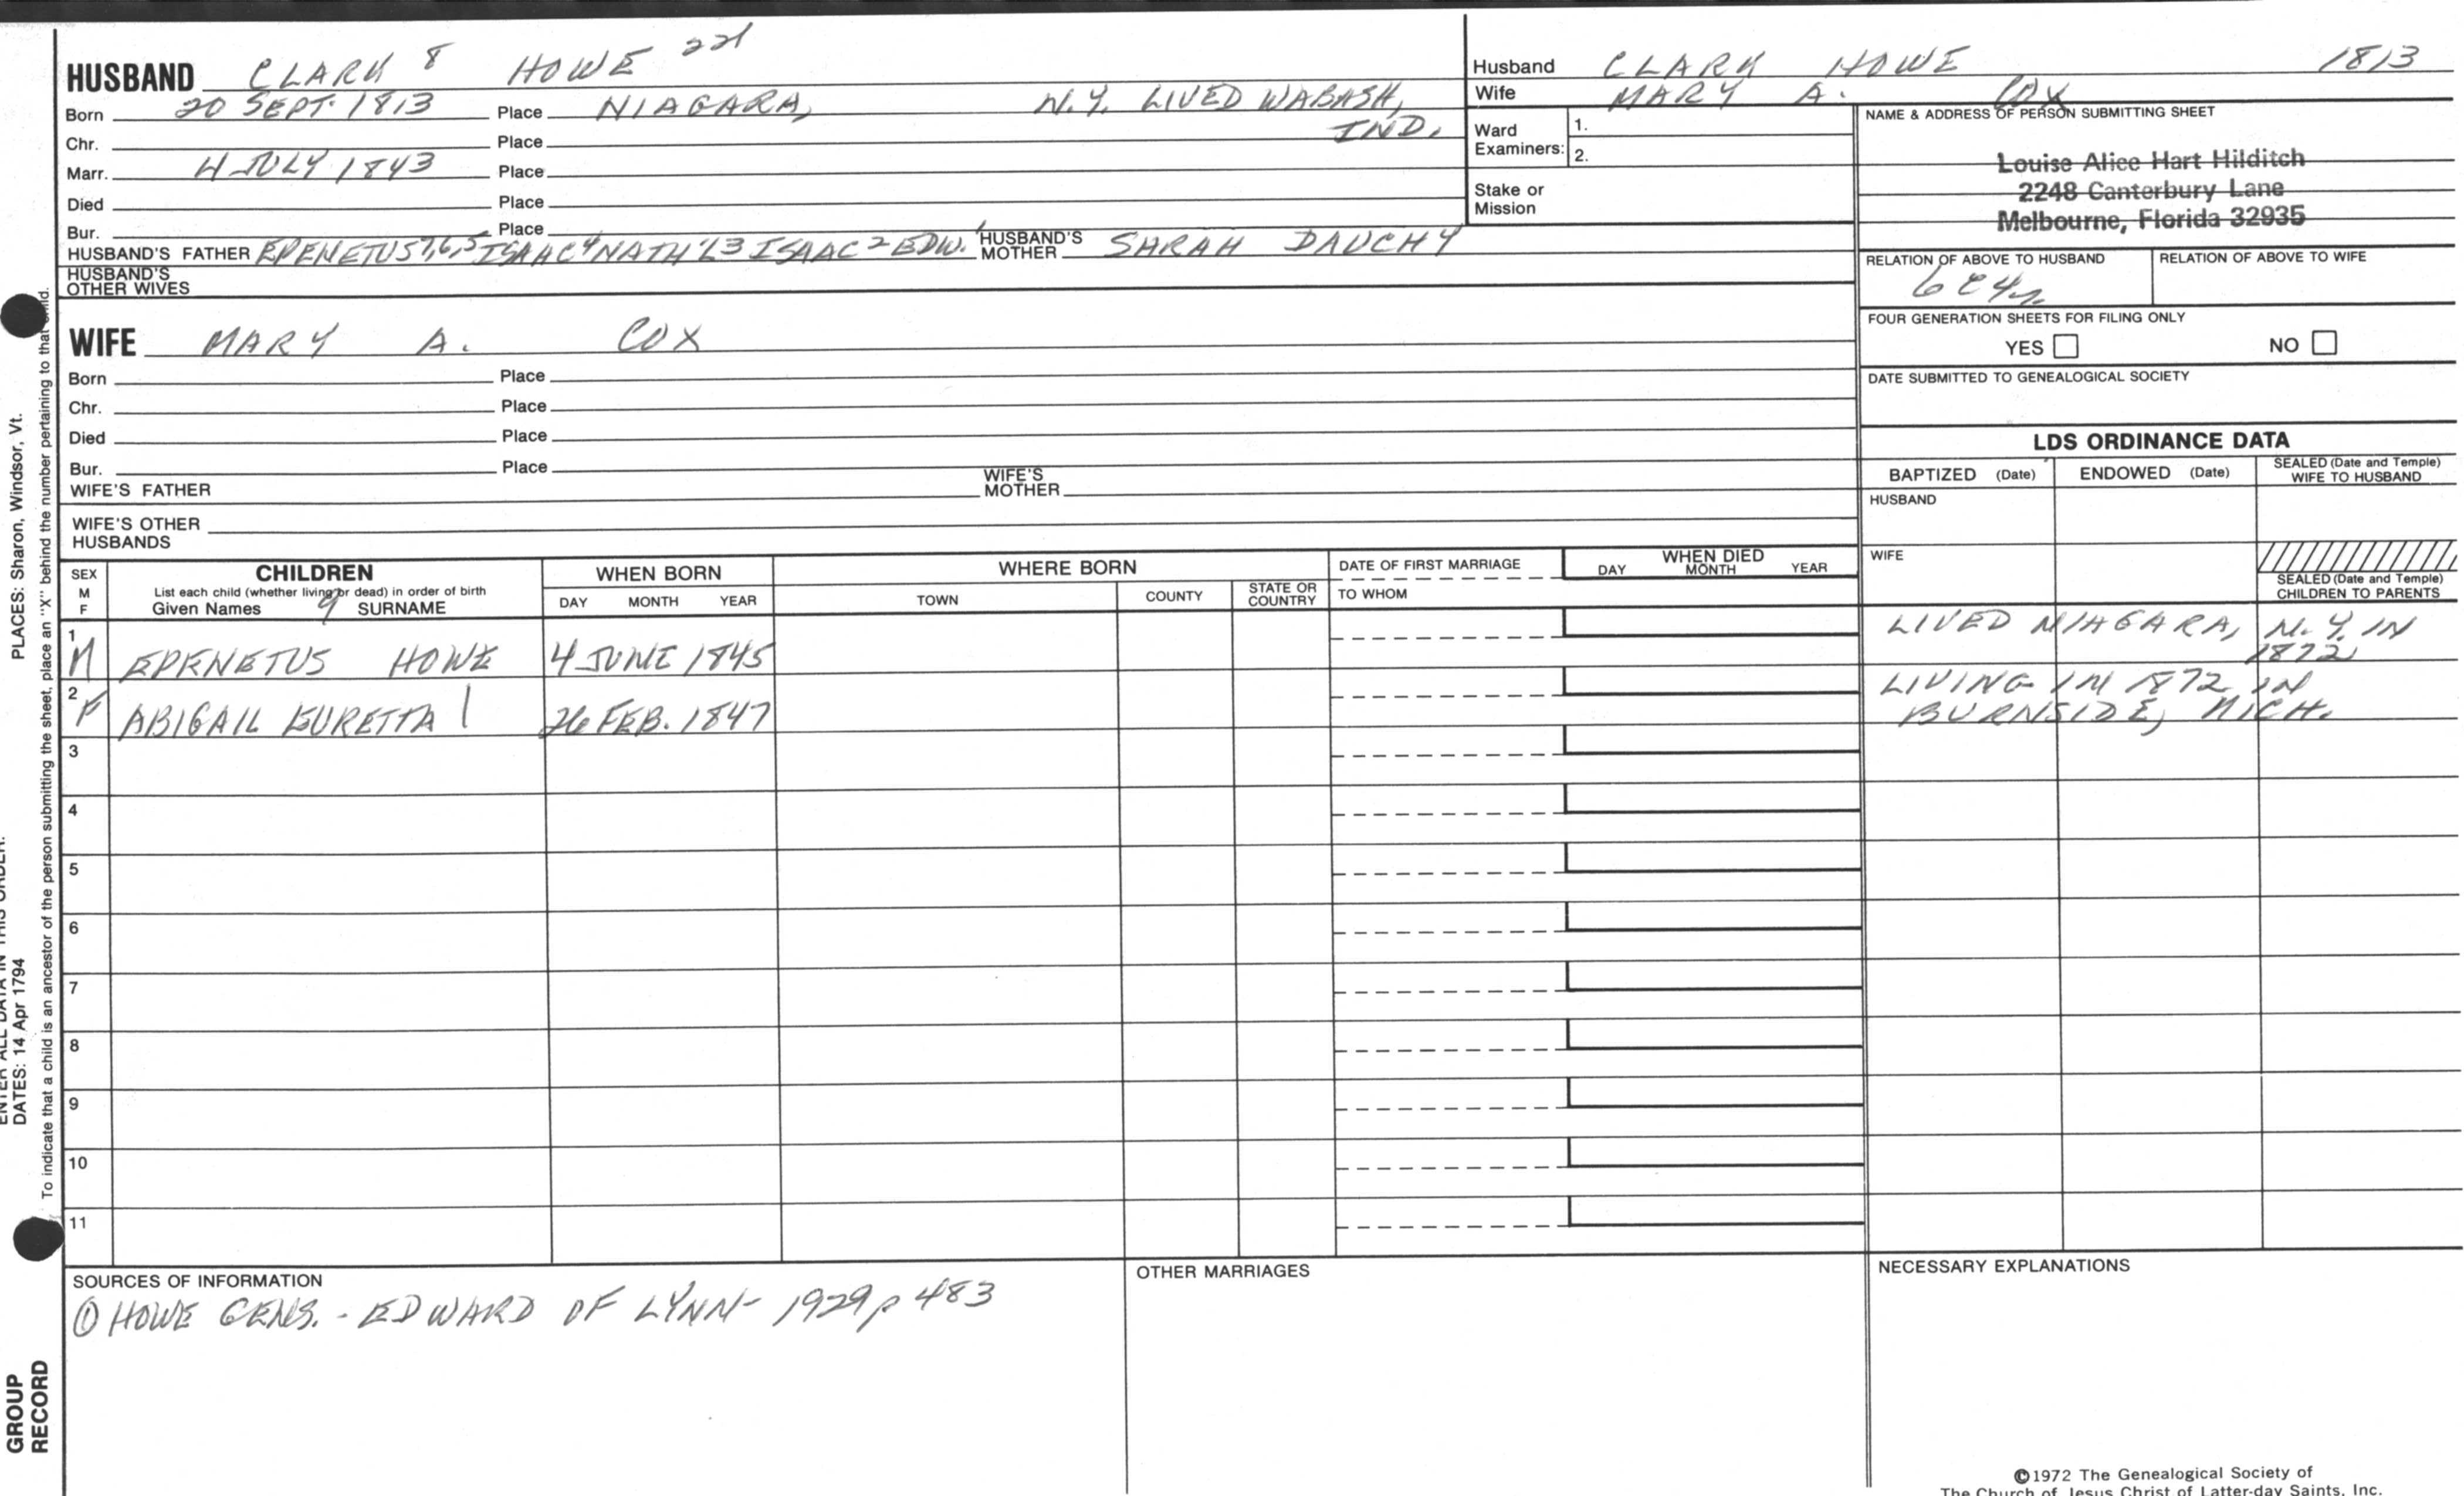 HUSBAND CLARK 8 HOWE 221
Born 20 SEPT. 1813 Place NIAGARA, N.Y. LIVED WABASH, IND.
Chr. Place
Marr. 4 JULY 1843 Place
Died Place
Bur. Place
HUSBAND'S FATHER EPENETUS 7,6,5 ISAAC 4 NATH'L 3 ISAAC 2 EDW. 1 HUSBAND'S MOTHER SARAH DAUCHY
HUSBAND'S OTHER WIVES
WIFE MARY A. COX
Born Place
Chr. Place
Died Place
Bur. Place
WIFE'S FATHER WIFE'S MOTHER
WIFE'S OTHER HUSBANDS
Husband CLARK HOWE 1813
Wife MARY A. COX
Ward Examiners: 1.
2.
Stake or Mission
NAME & ADDRESS OF PERSON SUBMITTING SHEET
Louise Alice Hart Hilditch
2248 Canterbury Lane
Melbourne, Florida 32935
RELATION OF ABOVE TO HUSBAND RELATION OF ABOVE TO WIFE
FOUR GENERATION SHEETS FOR FILING ONLY
YES NO
DATE SUBMITTED TO GENEALOGICAL SOCIETY
LDS ORDINANCE DATA
BAPTIZED (Date) ENDOWED (Date) SEALED (Date and Temple) WIFE TO HUSBAND
HUSBAND
WIFE
SEALED (Date and Temple) CHILDREN TO PARENTS
SEX M F
CHILDREN
List each child (whether living or dead) in order of birth
Given Names 9 SURNAME
WHEN BORN
DAY MONTH YEAR
WHERE BORN
TOWN COUNTY STATE OR COUNTRY
DATE OF FIRST MARRIAGE
TO WHOM
WHEN DIED
DAY MONTH YEAR
1 M EPENETUS HOWE 4 JUNE 1845 LIVED NIAGARA, N.Y. IN 1872
2 F ABIGAIL EURETTA 26 FEB. 1847 LIVING IN 1872 IN BURNSIDE, MICH.
3
4
5
6
7
8
9
10
11
SOURCES OF INFORMATION
① HOWE GENS. - EDWARD OF LYNN - 1929 p 483
OTHER MARRIAGES
NECESSARY EXPLANATIONS
©1972 The Genealogical Society of
The Church of Jesus Christ of Latter-day Saints, Inc.
PLACES: Sharon, Windsor, Vt.
To indicate that a child is an ancestor of the person submitting the sheet, place an "X" behind the number pertaining to that child.
ENTER ALL DATA IN THIS ORDER:
DATES: 14 Apr 1794
GROUP
RECORD